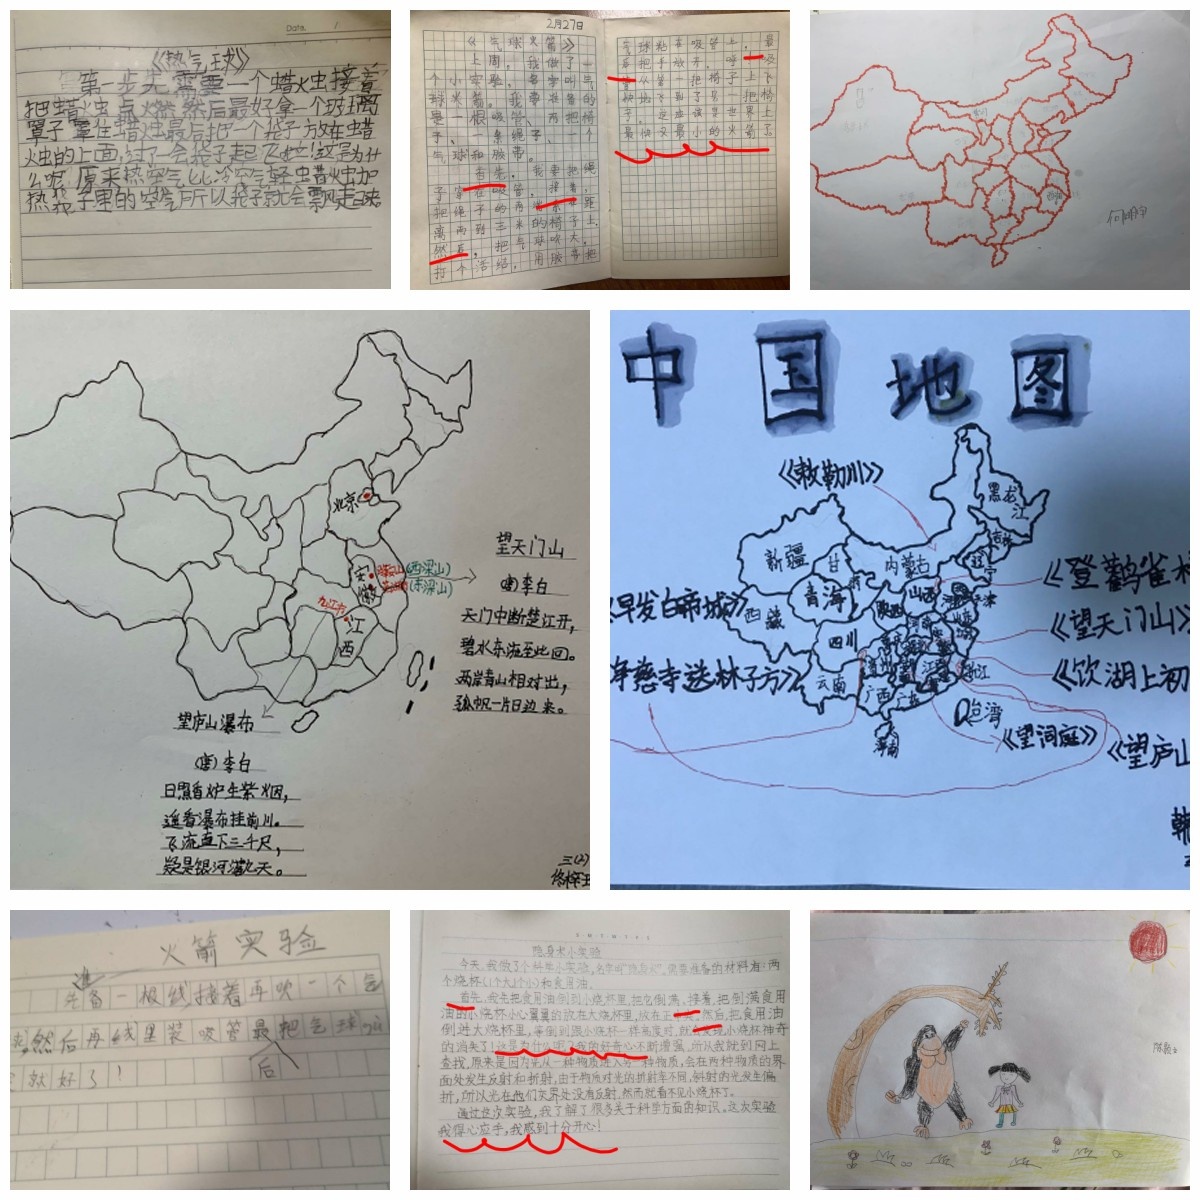 Date
《热气球》
第一步先需要一个蜡火虫接着
把蜡火虫点燃然后最好拿一个玻璃
罩子罩住蜡烛最后把一个袋子放在蜡
火虫的上面,过了一会袋子起飞
么呢原来热空气比冷空气轻虫蜡火虫加
热袋子里的空气所以袋子就会飘起
2月27日
《气球火箭》
上周,我做了一
个小实验,名字叫气
球火箭。我需准备的
是一根吸管、两把椅
子、一条绳子、一个
气球和胶带。
首先,我要把绳
子穿在吸管,接着,
把绳子的两端系在距
离两到三米的椅子上。
然后,把气球吹大,
打个活结,用胶带把
气球粘在吸管上,最
何明宇
北京
安徽
九江市
江西
(西梁山)
(东梁山)
望天门山
(唐)李白
天门中断楚江开,
碧水东流至此回。
两岸青山相对出,
孤帆一片日边来。
望庐山瀑布
(唐)李白
日照香炉生紫烟,
遥看瀑布挂前川。
飞流直下三千尺,
疑是银河落九天。
三(2)
中国地图
《敕勒川》
黑龙江
吉林
辽宁
新疆
甘肃
内蒙古
青海
山西
西藏
陕西
四川
云南
广西
广东
江西
浙江
台湾
海南
《早发白帝城》
净慈寺送林子方》
《登鹳雀
《望天门山》
《饮湖上初
《望洞庭》
《望庐山
韩
火箭实验
准
先备一根线接着再吹一个气
然后再线里装吸管最把气球
后
就好了!
隐身术小实验
今天,我做了个科学小实验,名字叫"隐身术",需要准备的材料有:两
个烧杯(1个大1个小)和食用油。
首先,我先把食用油倒到小烧杯里,把它倒满,接着,把倒满食用
油的小烧杯小心翼翼的放在大烧杯里,放在正中,然后,把食用油
倒进大烧杯里,等倒到跟小烧杯一样高度时,就会发现小烧杯神奇
的消失了!这是为什么呢?我的好奇心不断增强,所以我就到网上
查找,原来是因为光从一种物质进入另一种物质,会在两种物质的界
面处发生反射和折射,由于物质对光的折射率不同,斜射的光发生偏
折,所以光在他们交界处没有反射,然而就看不见小烧杯了。
通过这次实验,我了解了很多关于科学方面的知识。这次实验
我得心应手,我感到十分开心!